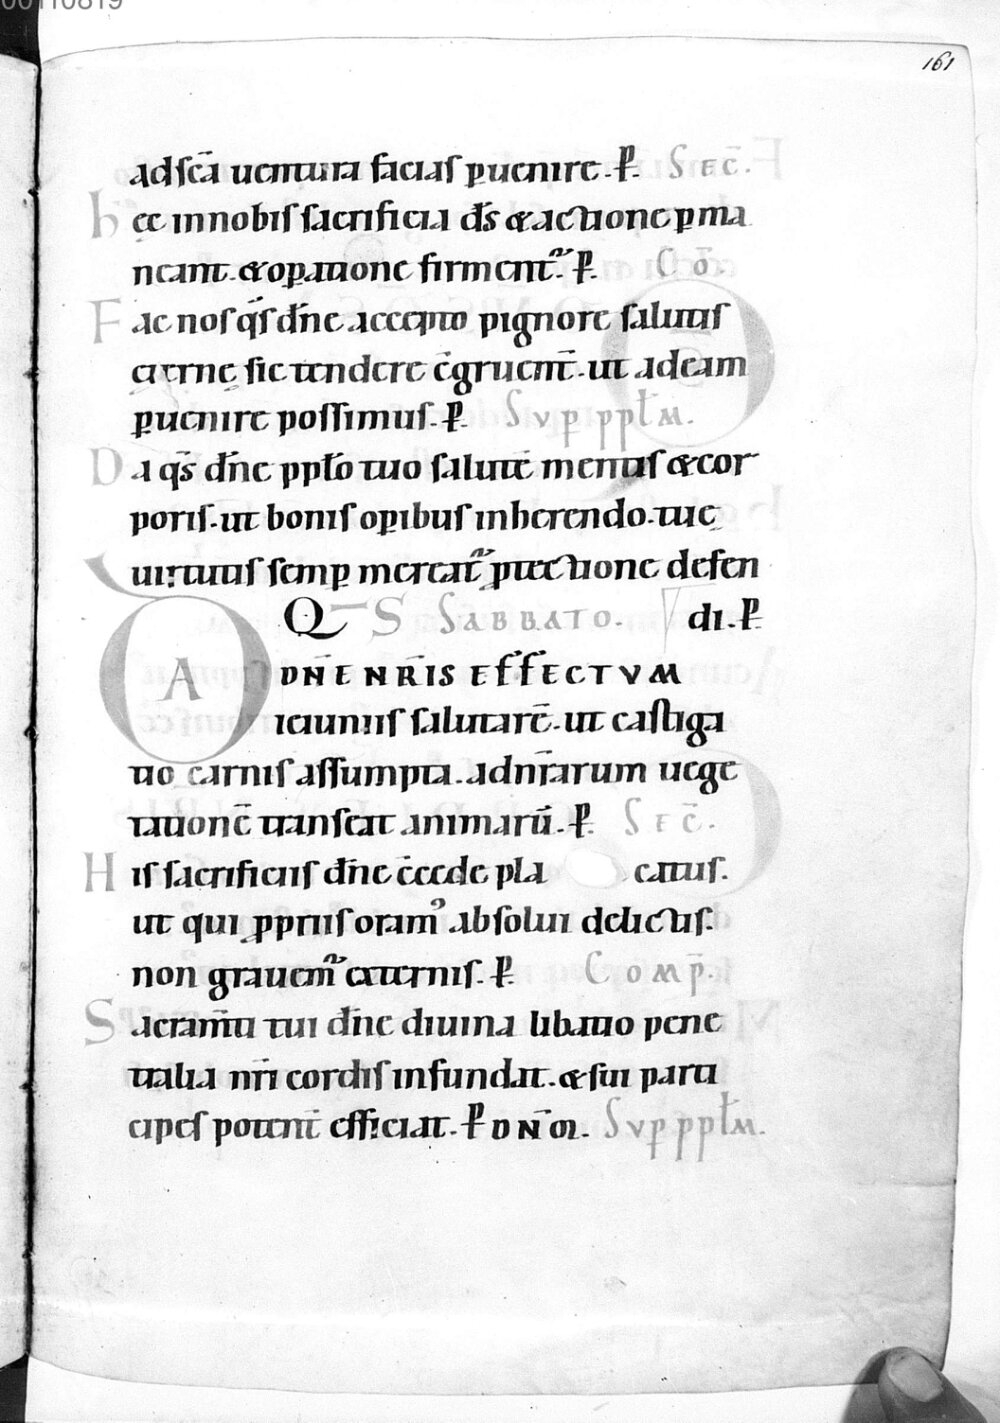 00110819
161
ad sc̄a uentura facias ꝑuenire. ꝑ. Sec̄.
Hęc in nobis sacrificia d̄s & actione ꝑma
neant. & oꝑatione firment᷑. ꝑ. Cō.
Fac nos q̄s dn̄e accepto pignore salutis
aeternę sic tendere c̄gruent̄. ut ad eam
ꝑuenire possimus. ꝑ. Suꝑ pplm̄.
Da q̄s dn̄e ppl̄o tuo salutē mentis & cor
poris. ut bonis oꝑibus inherendo. tuę
uirtutis semꝑ mereat᷑ ꝓtectione defen
di. ꝑ.
Q̄S Sabbato.
DA Q̄S
DN̄E NR̄IS EFFECTUM
ieiuniis salutarē. ut castiga
tio carnis assumpta. ad nr̄arum uege
tationē transeat animarū. ꝑ. Sec̄.
His sacrificiis dn̄e c̄cede placatus.
ut qui ꝓpriis oram᷒ absolui delictis.
non grauem᷑ externis. ꝑ. Comp̄.
Sacram̄ti tui dn̄e diuina libatio pene
tralia nr̄i cordis infundat. & sui parti
cipes potent̄ efficiat. ꝑ DN̄M. Suꝑ pplm̄.